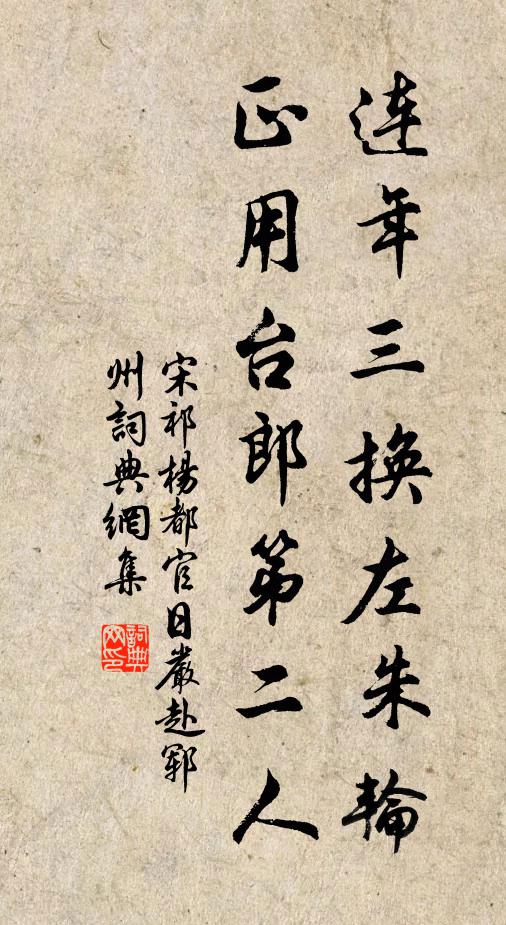 連年三換左朱輪
正用台郎第二人
宋祁楊都官日嚴赴鄆
州詞典網集
詞典
网印